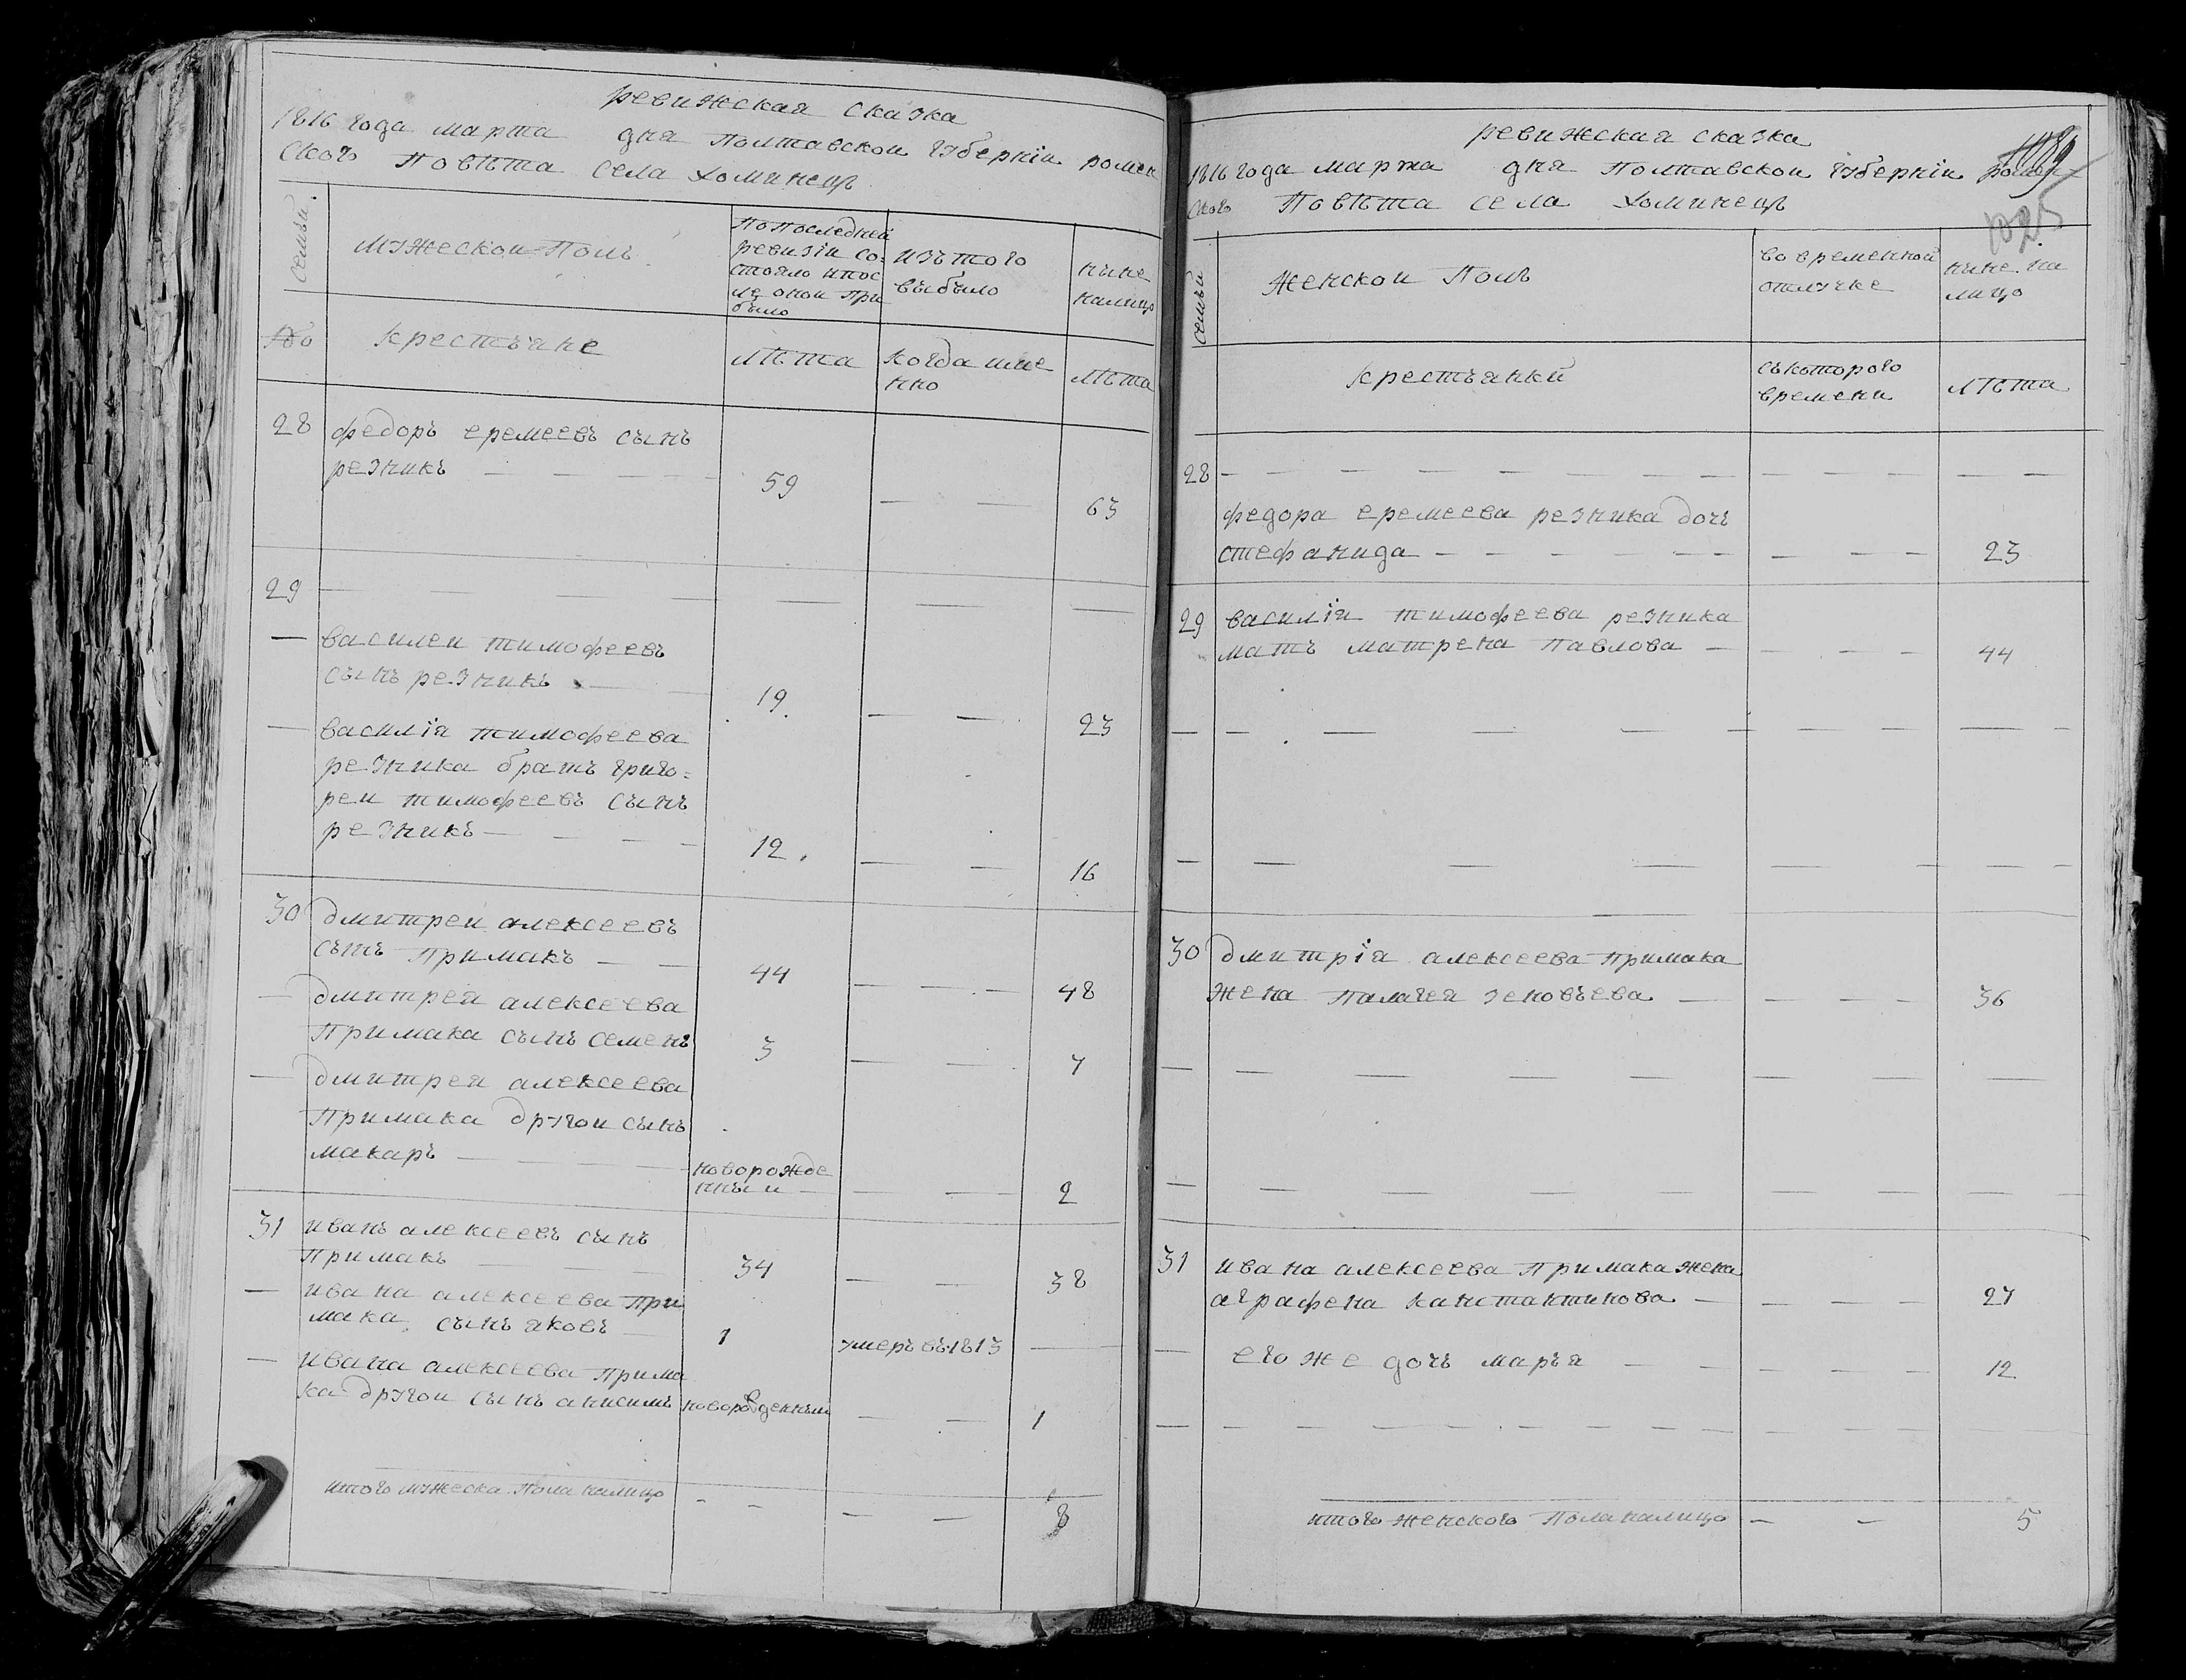 ревижская сказка
1816 года марта дня Полтавской губерніи ромен
ского Повѣта села Хоминецъ
семьи.
мужеской Полъ
По последней
ревизіи со=
стояло и пос
ле оной при
было
изъ того
выбыло
ныне
налицо
№
крестъяне
лѣта
когда име
нно
лѣта
28
федоръ еремеевъ сынъ
резникъ
59
63
29
василеи тимофеевъ
сынъ резникъ
19.
23
василія тимофеева
резника братъ григо=
реи тимофеевъ сынъ
резникъ
12.
16
30
дмитреи алексеевъ
сынъ Примакъ
44
48
дмитрея алексеева
Примака сынъ семенъ
3
7
дмитрея алексеева
Примака другои сынъ
макаръ
новорожде
нныи
2
31
иванъ алексеевъ сынъ
Примакъ
34
38
ивана алексеева При
мака сынъ яковъ
1
умеръ въ 1813
ивана алексеева Прима
ка другои сынъ анисимъ
новорожденныи
1
итого мужеска Пола налицо
8
ревижская сказка
1816 года марта дня Полтавской губерніи ромен
ского Повѣта села Хоминецъ
1025
семьи
женской Полъ
во временной
отлучке
ныне на
лицо
крестъянки
съ которого
времени
лѣта
28
федора еремеева резника дочь
стефанида
23
29
василія тимофеева резника
мать матрена Павлова
44
30
дмитрія алексеева Примака
жена Палагея зеновъева
36
31
ивана алексеева Примака жена
аграфена канстантинова
27
его же дочь маръя
12
итого женского Пола налицо
5